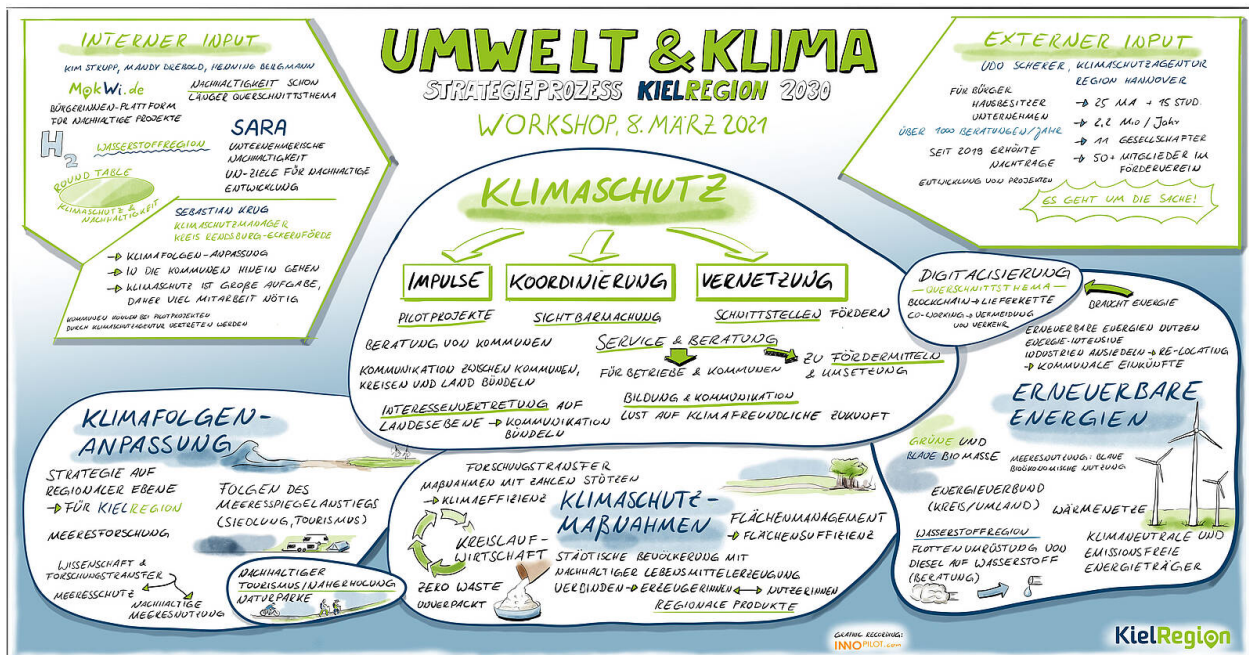 UMWELT & KLIMA
STRATEGIEPROZESS KIELREGION 2030
WORKSHOP, 8. MÄRZ 2021
INTERNER INPUT
KIM STRUPP, MANDY DREBOLD, HENNING BERGMANN
MokWi.de
BÜRGERINNEN-PLATTFORM
FÜR NACHHALTIGE PROJEKTE
NACHHALTIGKEIT SCHON
LÄNGER QUERSCHNITTSTHEMA
H2
WASSERSTOFFREGION
SARA
UNTERNEHMERISCHE
NACHHALTIGKEIT
UN-ZIELE FÜR NACHHALTIGE
ENTWICKLUNG
ROUND TABLE
KLIMASCHUTZ &
NACHHALTIGKEIT
SEBASTIAN KRUG
KLIMASCHUTZMANAGER
KREIS RENDSBURG-ECKERNFÖRDE
→ KLIMAFOLGEN-ANPASSUNG
→ IN DIE KOMMUNEN HINEIN GEHEN
→ KLIMASCHUTZ IST GROẞE AUFGABE,
DAHER VIEL MITARBEIT NÖTIG
KOMMUNEN KÖNNEN BEI PILOTPROJEKTEN
DURCH KLIMASCHUTZAGENTUR VERTRETEN WERDEN
EXTERNER INPUT
UDO SCHERER, KLIMASCHUTZAGENTUR
REGION HANNOVER
FÜR BÜRGER
HAUSBESITZER
UNTERNEHMEN
ÜBER 1000 BERATUNGEN/JAHR
SEIT 2019 ERHÖHTE
NACHTRAGE
ENTWICKLUNG VON PROJEKTEN
→ 25 MA + 15 STUD.
→ 2,2 Mio / Jahr
→ 11 GESELLSCHAFTER
→ 50+ MITGLIEDER IM
FÖRDERVEREIN
ES GEHT UM DIE SACHE!
KLIMASCHUTZ
IMPULSE
KOORDINIERUNG
VERNETZUNG
PILOTPROJEKTE
SICHTBARMACHUNG
SCHNITTSTELLEN FÖRDERN
BERATUNG VON KOMMUNEN
SERVICE & BERATUNG
ZU FÖRDERMITTELN
& UMSETZUNG
FÜR BETRIEBE & KOMMUNEN
KOMMUNIKATION ZWISCHEN KOMMUNEN,
KREISEN UND LAND BÜNDELN
INTERESSENVERTRETUNG AUF
LANDESEBENE → KOMMUNIKATION
BÜNDELN
BILDUNG & KOMMUNIKATION
LUST AUF KLIMAFREUNDLICHE ZUKUNFT
DIGITALISIERUNG
QUERSCHNITTSTHEMA
BLOCKCHAIN → LIEFERKETTE
CO-WORKING → VERMEIDUNG
VON VERKEHR
BRAUCHT ENERGIE
ERNEUERBARE ENERGIEN NUTZEN
ENERGIE-INTENSIVE
INDUSTRIEN ANSIEDELN → RE-LOCATING
→ KOMMUNALE EINKÜNFTE
ERNEUERBARE
ENERGIEN
GRÜNE UND
BLAUE BIOMASSE
MEERESNUTZUNG: BLAUE
BIOÖKONOMISCHE NUTZUNG
ENERGIEVERBUND
(KREIS/UMLAND)
WÄRMENETZE
WASSERSTOFFREGION
FLOTTENUMRÜSTUNG VON
DIESEL AUF WASSERSTOFF
(BERATUNG)
KLIMANEUTRALE UND
EMISSIONSFREIE
ENERGIETRÄGER
KLIMAFOLGEN-
ANPASSUNG
STRATEGIE AUF
REGIONALER EBENE
→ FÜR KIELREGION
MEERESFORSCHUNG
WISSENSCHAFT &
FORSCHUNGSTRANSFER
MEERESSCHUTZ
NACHHALTIGE
MEERESNUTZUNG
FOLGEN DES
MEERESSPIEGELANSTIEGS
(SIEDLUNG, TOURISMUS)
NACHHALTIGER
TOURISMUS/NAHERHOLUNG
NATURPARKE
FORSCHUNGSTRANSFER
MAẞNAHMEN MIT ZAHLEN STÜTZEN
→ KLIMAEFFIZIENZ
KLIMASCHUTZ-
MAẞNAHMEN
KREISLAUF-
WIRTSCHAFT
ZERO WASTE
UNVERPACKT
FLÄCHENMANAGEMENT
→ FLÄCHENSUFFIZIENZ
STÄDTISCHE BEVÖLKERUNG MIT
NACHHALTIGER LEBENSMITTELERZEUGUNG
VERBINDEN → ERZEUGERINNEN ↔ NUTZERINNEN
REGIONALE PRODUKTE
GRAPHIC RECORDING:
INNOPILOT.com
KielRegion